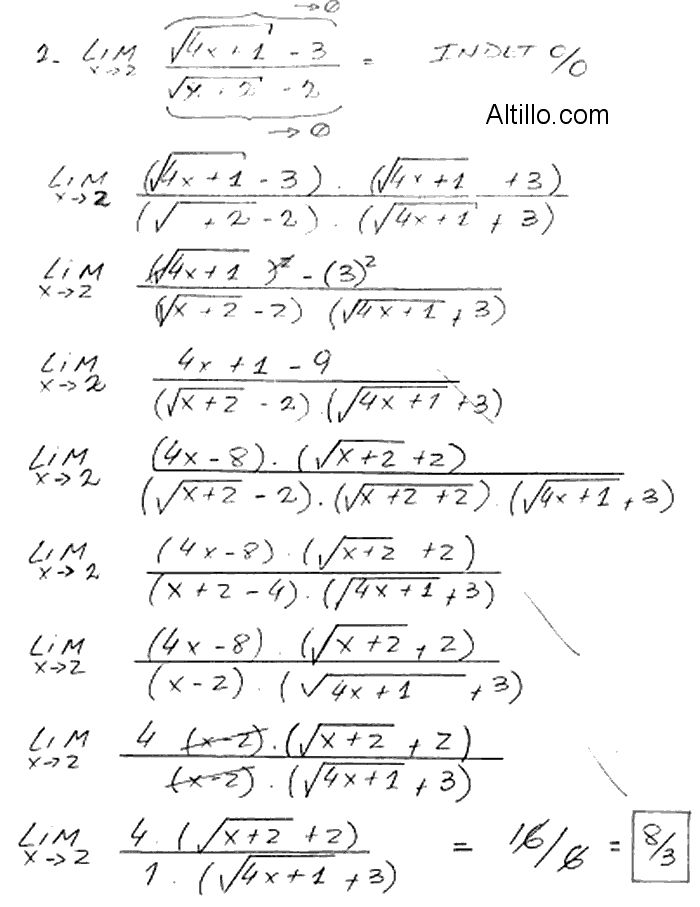 →0
2- LiM x→2 (√(4x+1) - 3) / (√(x+2) - 2) = INDET 0/0
→0
Altillo.com
LiM x→2 (√(4x+1) - 3) . (√(4x+1) + 3) / (√( +2) - 2) . (√(4x+1) + 3)
LiM x→2 (√(4x+1))² - (3)² / (√(x+2) - 2) (√(4x+1) + 3)
LiM x→2 4x + 1 - 9 / (√(x+2) - 2) . (√(4x+1) + 3)
LiM x→2 (4x - 8) . (√(x+2) + 2) / (√(x+2) - 2) . (√(x+2+2)) . (√(4x+1) + 3)
LiM x→2 (4x-8) . (√(x+2) + 2) / (x + 2 - 4) . (√(4x+1) + 3)
LiM x→2 (4x - 8) . (√(x+2) + 2) / (x - 2) . (√(4x+1) + 3)
LiM x→2 4 (x-2) . (√(x+2) + 2) / (x-2) . (√(4x+1) + 3)
LiM x→2 4 . (√(x+2) + 2) / 1 . (√(4x+1) + 3) = 16/6 = 8/3